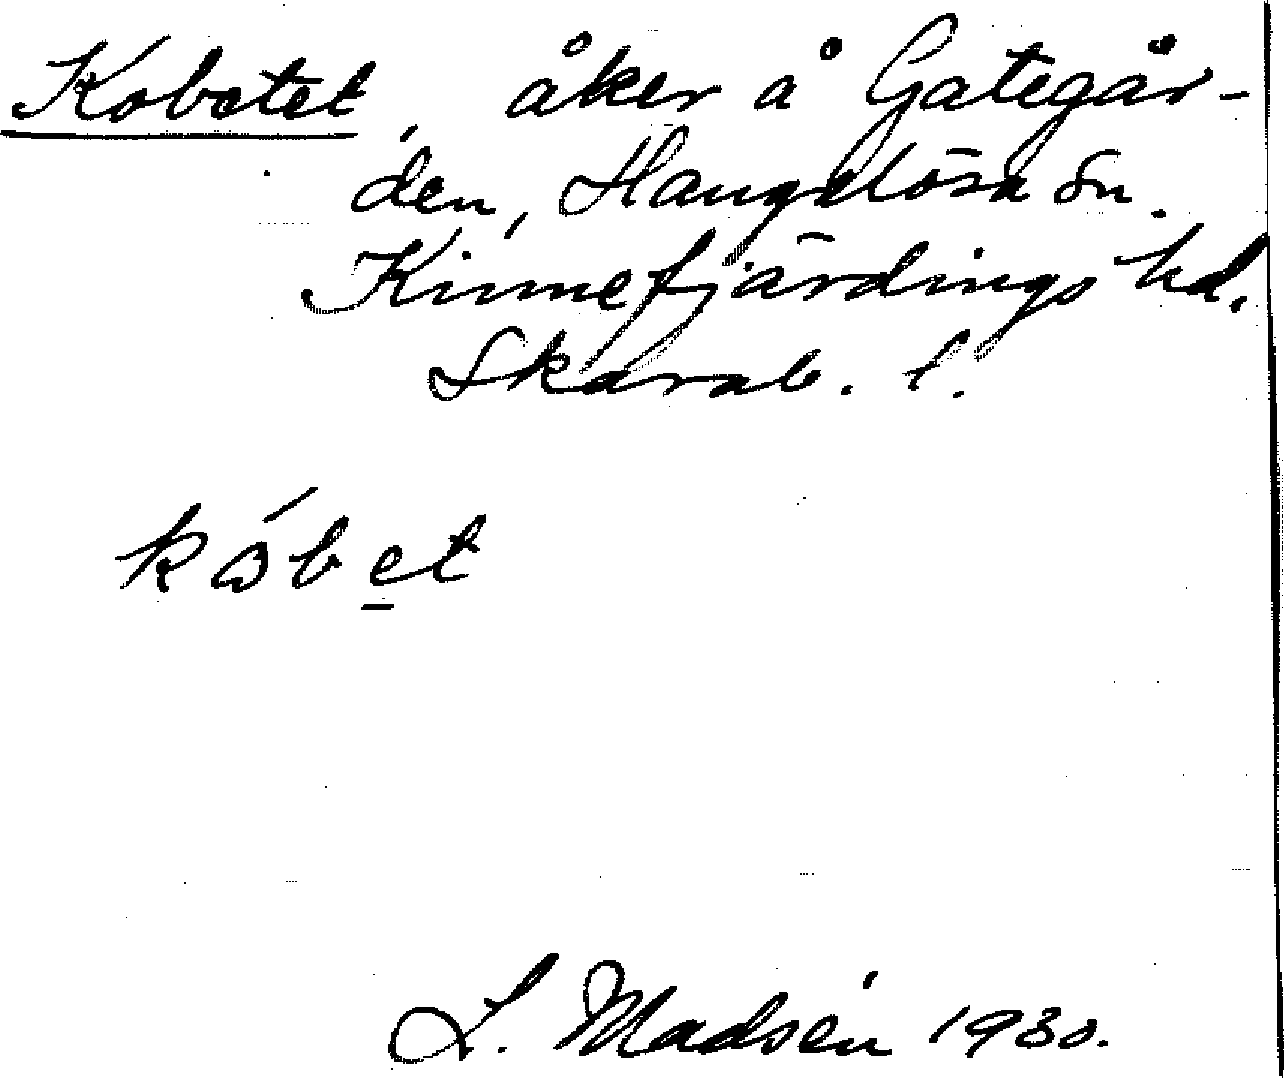 Kobetet, åker å Gategår-
den, Hangelösa sn.
Kinnefjärdings hd.
Skarab. l.
kɷ́bet
L. Madsén 1930.